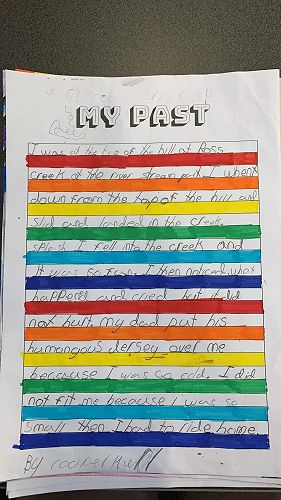 MY PAST
I was at the top of the hill at Ross
creek at the river stream part. I whent
down from the top of the hill and
slid and landed in the creek.
splash I fell into the creek and
it was so fun. I then noticed what
happened and cried but it did
not hurt. my dad put his
humongous Jersey over me
because I was so cold. I did
not fit me because I was so
small then I had to ride home.
By